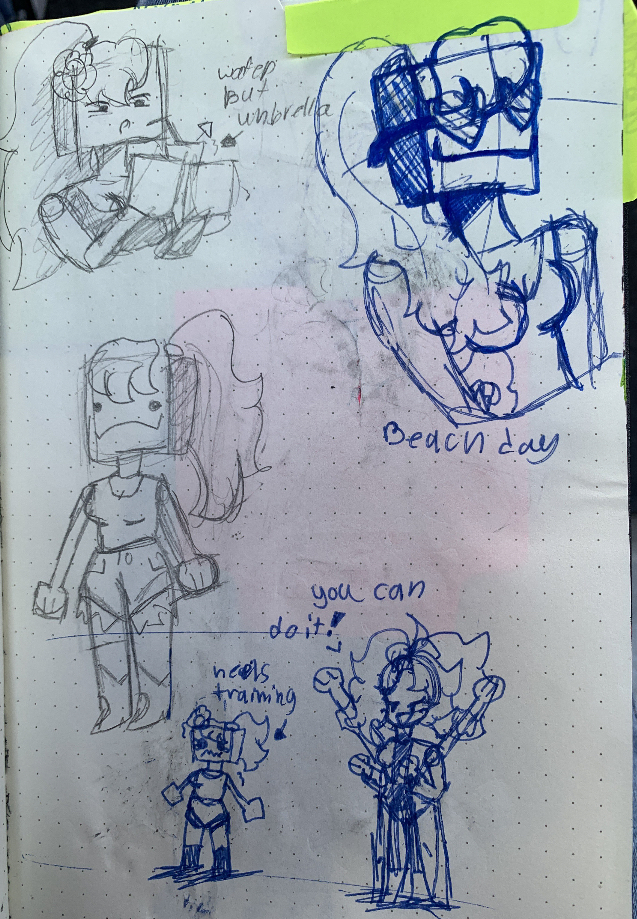 water
But
umbrella
Beach day
you can
do it!
heels
training